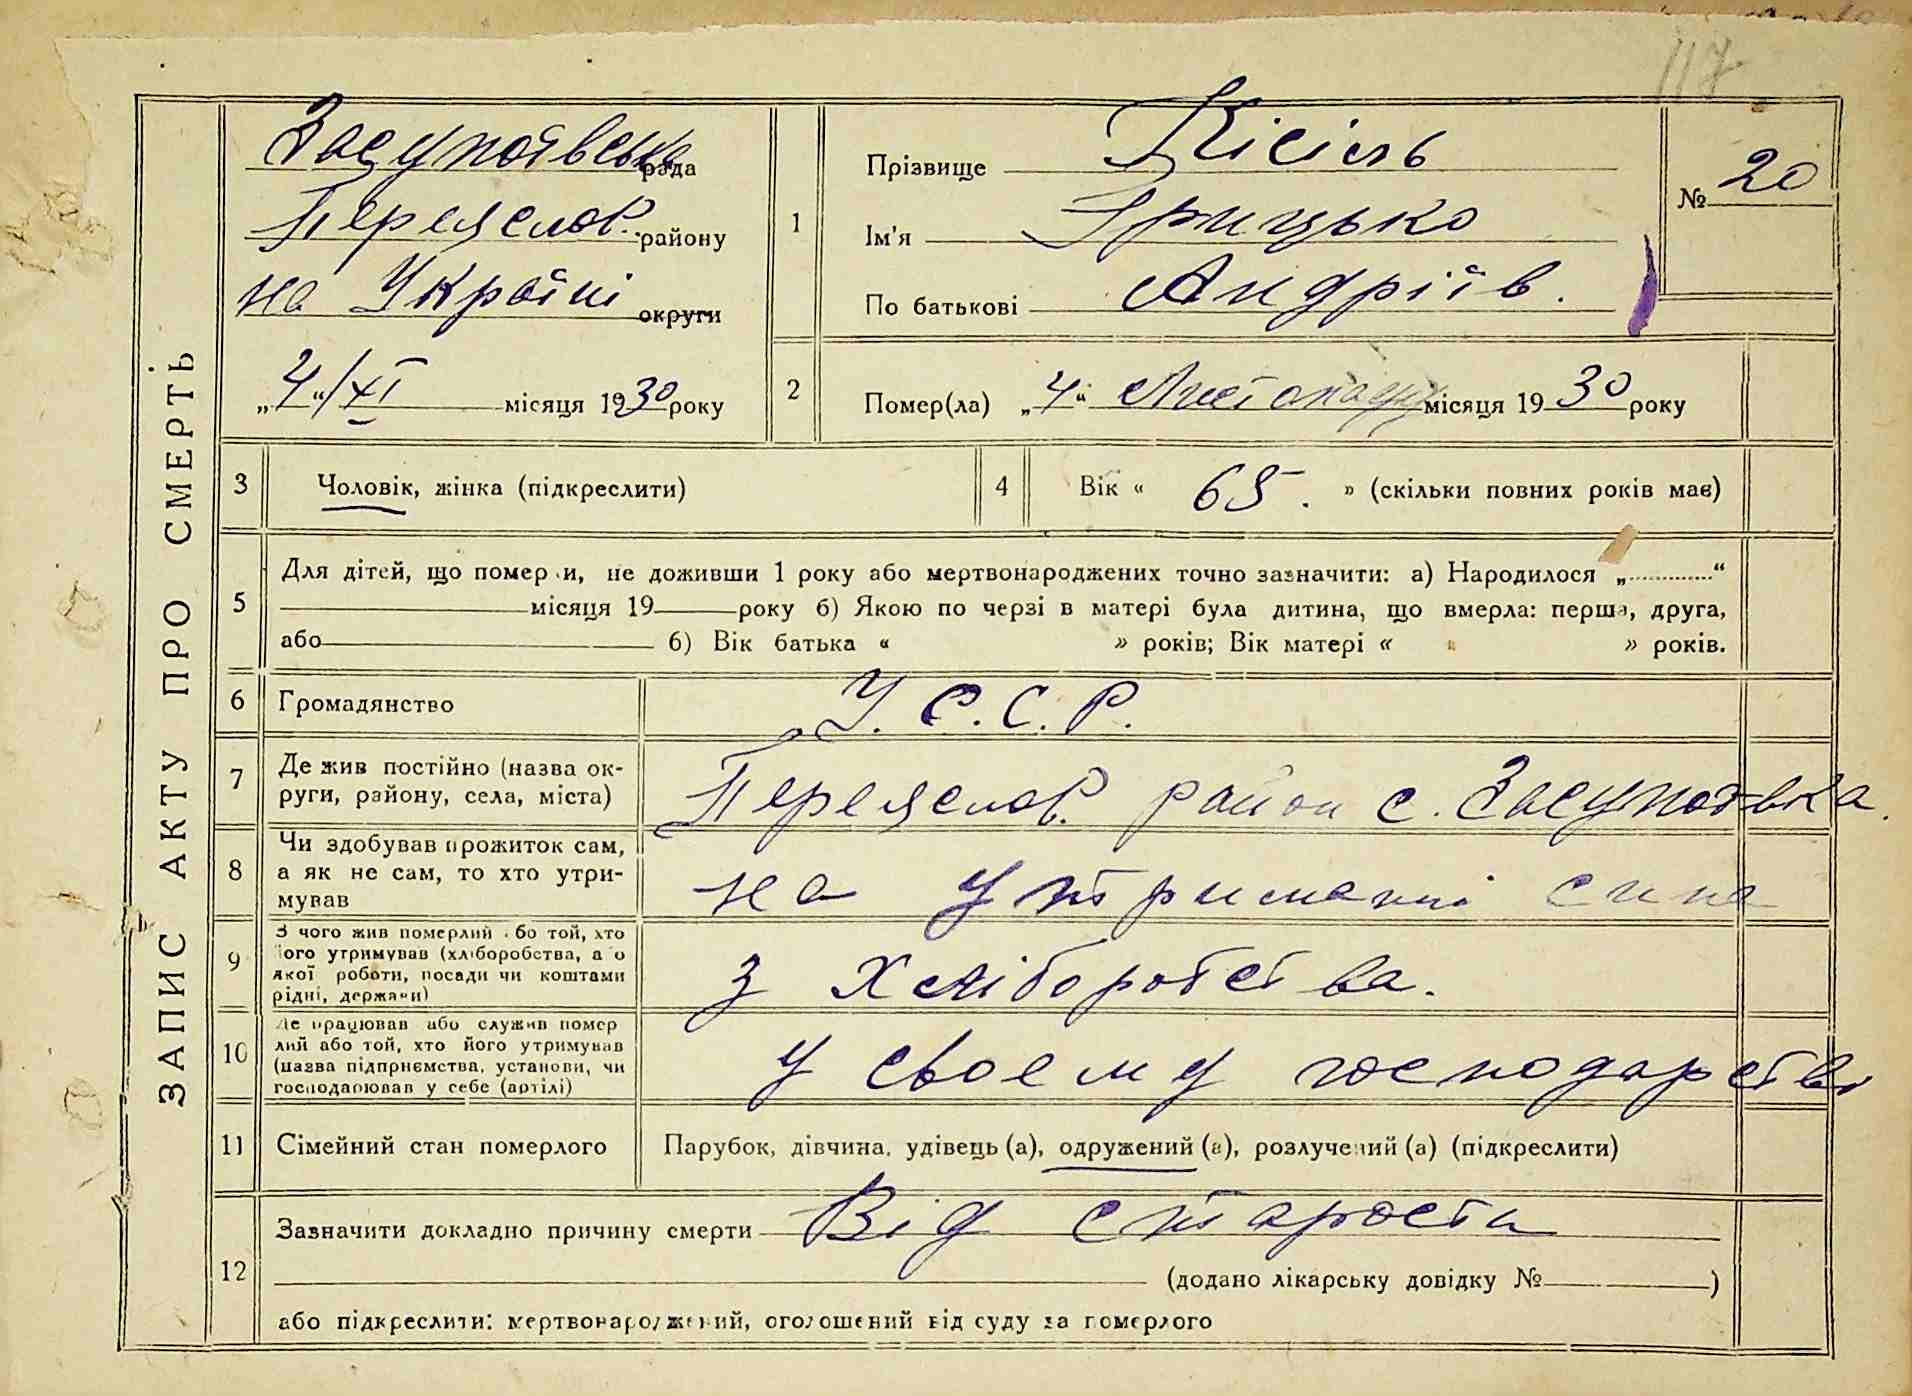 117
ЗАПИС АКТУ ПРО СМЕРТЬ
Засупоївська рада
Переяслов. району
на Україні округи
„4“/XI місяця 1930 року
1
Прізвище Кісіль
Ім'я Грицько
По батькові Андріїв.
№ 20
2
Помер(ла) „4“ Листопаду місяця 1930 року
3 Чоловік, жінка (підкреслити)
4 Вік « 65. » (скільки повних років має)
5
Для дітей, що померли, не доживши 1 року або мертвонароджених точно зазначити: а) Народилося „............“
місяця 19 року б) Якою по черзі в матері була дитина, що вмерла: перша, друга,
або б) Вік батька « » років; Вік матері « » років.
6 Громадянство У.С.С.Р.
7 Де жив постійно (назва ок-
руги, району, села, міста) Переяслов. район с. Засупоївка.
8 Чи здобував прожиток сам,
а як не сам, то хто утри-
мував на утриманні сина
9 З чого жив померлий або той, хто
його утримував (хліборобства, або
якої роботи, посади чи коштами
рідні, держави) з Хліборобства.
10 Де працював або служив помер
лий або той, хто його утримував
(назва підприємства, установи, чи
господарював у себе (артілі) у своему господарстві
11 Сімейний стан померлого Парубок, дівчина, удівець (а), одружений (а), розлучений (а) (підкреслити)
12
Зазначити докладно причину смерти Від старости
(додано лікарську довідку № )
або підкреслити: мертвонароджений, оголошений від суду за померлого